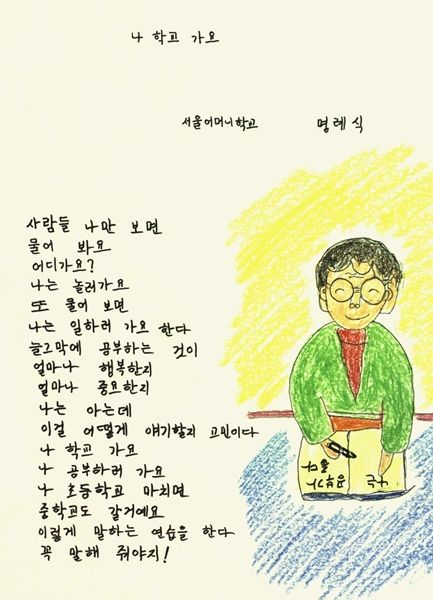 나 학교 가요
서울어머니학교 명례식
사람들 나만 보면
물어 봐요
어디가요?
나는 놀러가요
또 물어 보면
나는 일하러 가요 한다
늘그막에 공부하는 것이
얼마나 행복한지
얼마나 중요한지
나는 아는데
이걸 어떻게 얘기할지 고민이다
나 학교 가요
나 공부하러 가요
나 초등학교 마치면
중학교도 갈거예요
이렇게 말하는 연습을 한다
꼭 말해 줘야지!